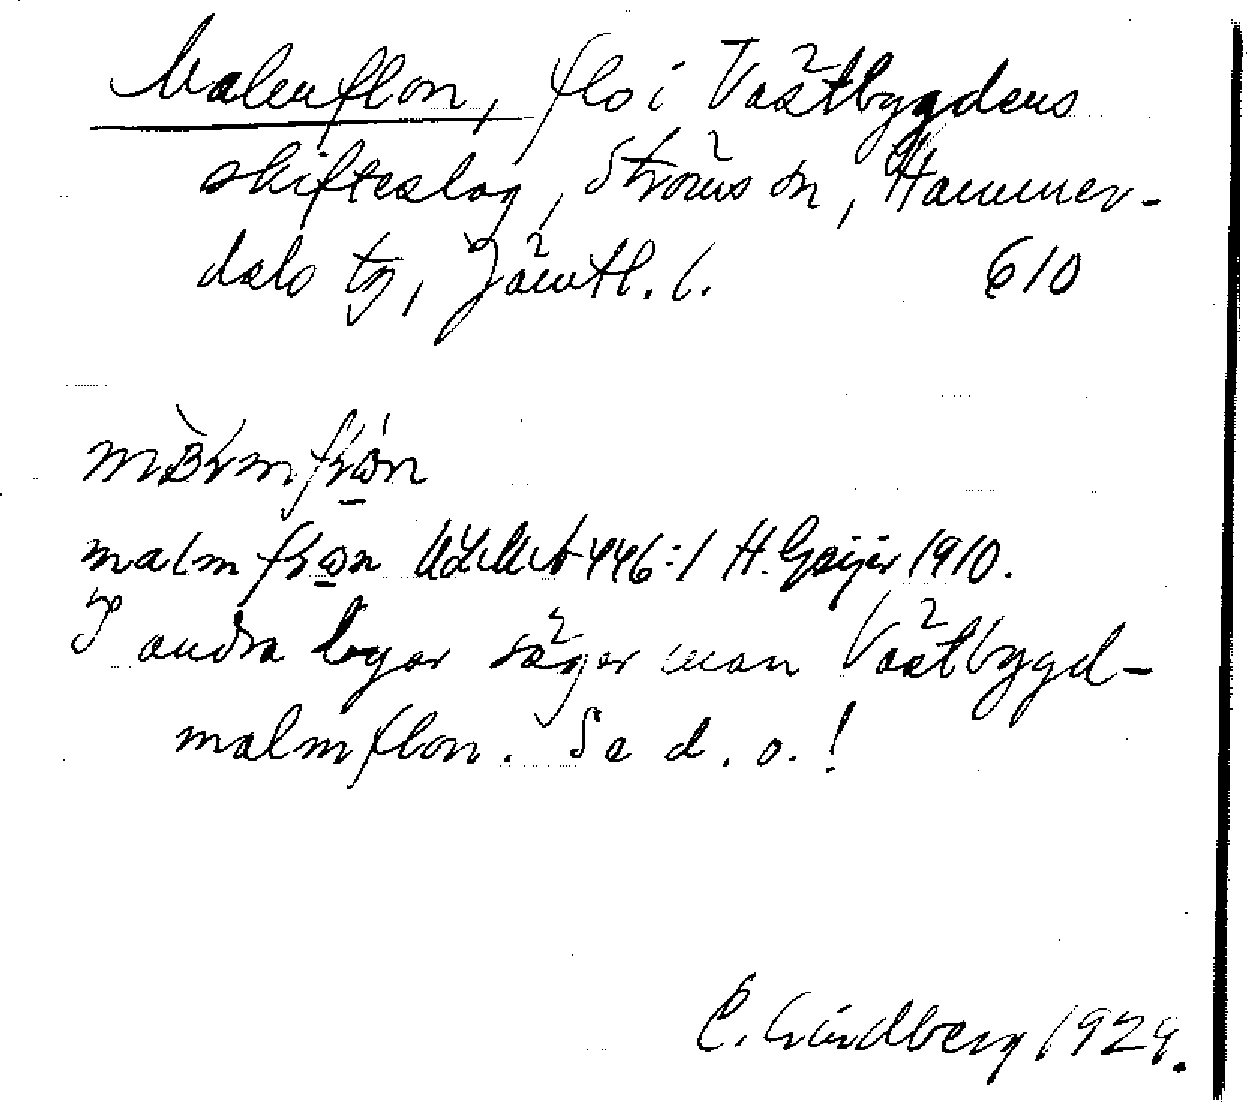 Malmflon, flo i Västbygdens
skifteslag, Ströms sn, Hammer-
dals tg, Jämtl. l. 610
malm ULMA 446:1 H. Geijer 1910.
I andra byar säger man Västbygd-
malmflon. Se d. o.!
E. Lindberg 1929.